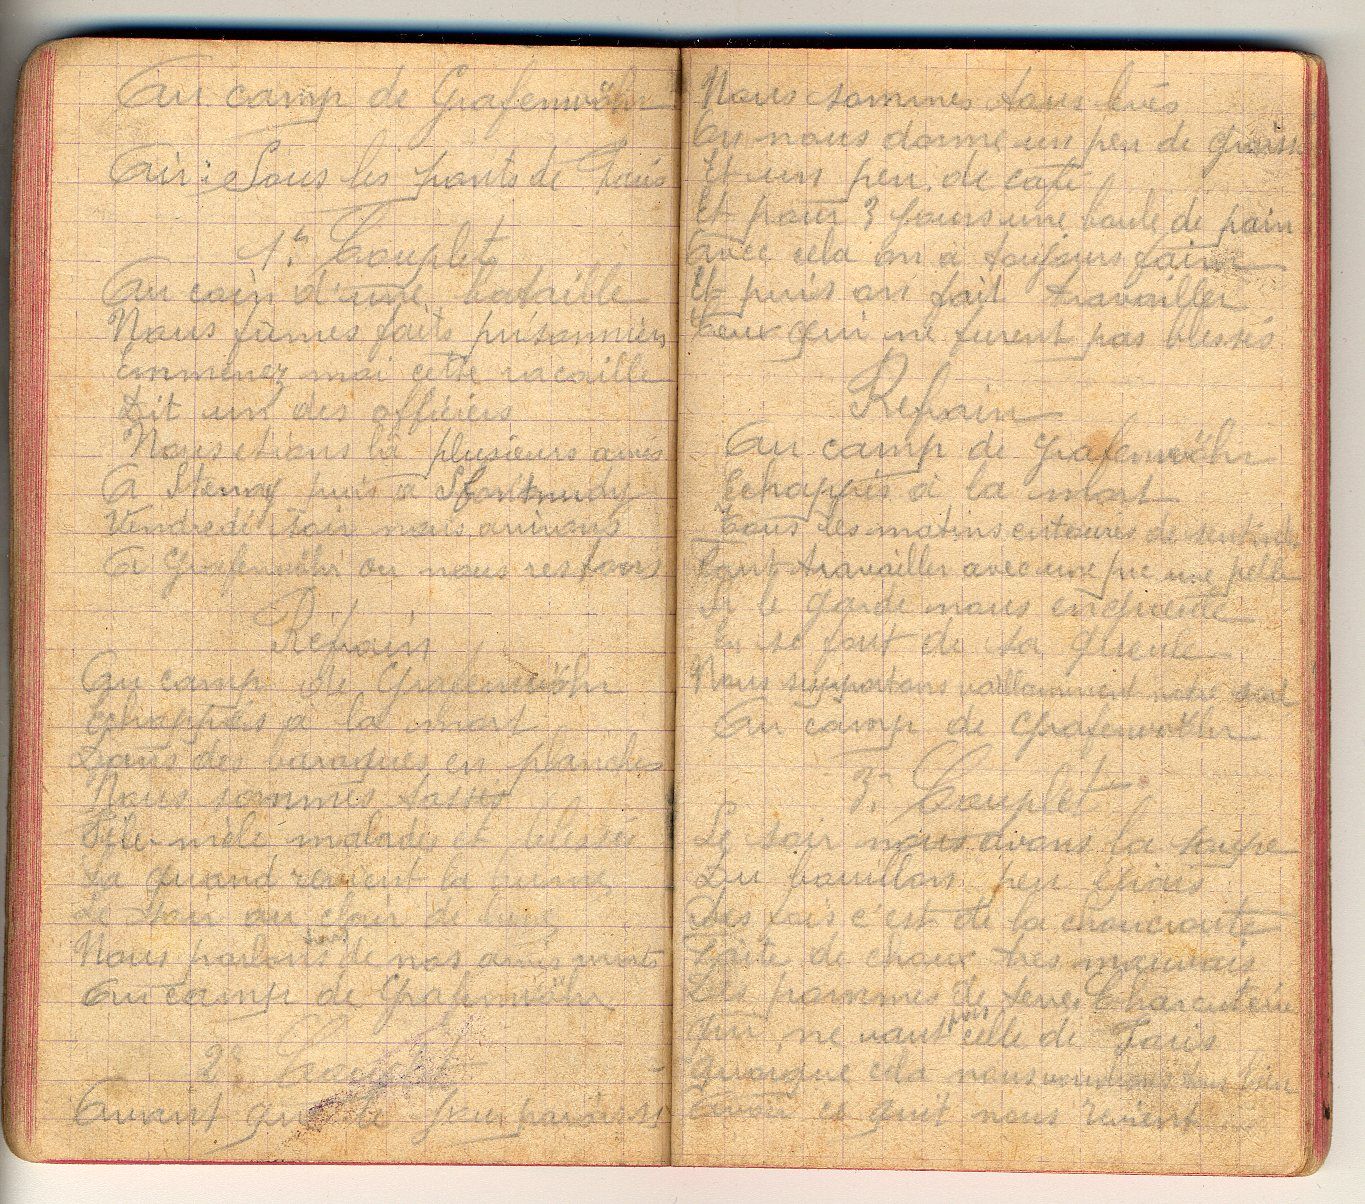 Au camp de Grafenwöhr
Air : Sous les ponts de Paris
1er Couplet
Au coin d'une bataille
Nous fûmes faits prisonnier
Emmenez moi cette racaille
Dit un des officiers
Nous etions là plusieurs amis
A Stenay puis a
Vendredi soir nous arrivons
A Grafenwöhr ou nous restons
Refrain
Au camp de Grafenwöhr
Echappés à la mort
Dans des baraques en planches
Nous sommes tassés
Pêle-mêle malades et blessés
Là quand revient la brume
Le soir au clair de lune
Nous parlons de nos amis morts
Au camp de Grafenwöhr
2e Couplet
Avant que le jour paraisse
Nous sommes tous levés
On nous donne un peu de graisse
Et un peu de café
Et pour 3 jours une boule de pain
Avec cela on a toujours faim
Et puis on fait travailler
Ceux qui ne furent pas blessés
Refrain
Au camp de Grafenwöhr
Echappés à la mort
Tous les matins entourés de sentinelles
Vont travailler avec une pic une pelle
Si le garde nous engueule
On se fout de sa gueule
Nous supportons vaillamment notre sort
Au camp de Grafenwöhr
3e Couplet
Le soir nous avons la soupe
Du bouillon peu épais
Des fois c'est de la choucroute
Faite de choux tres mauvais
Des pommes de terre Charcuterie
Qui ne vaut pas celle de Paris
Quoique cela nous voudrions bien
Avoir ce qui nous revient